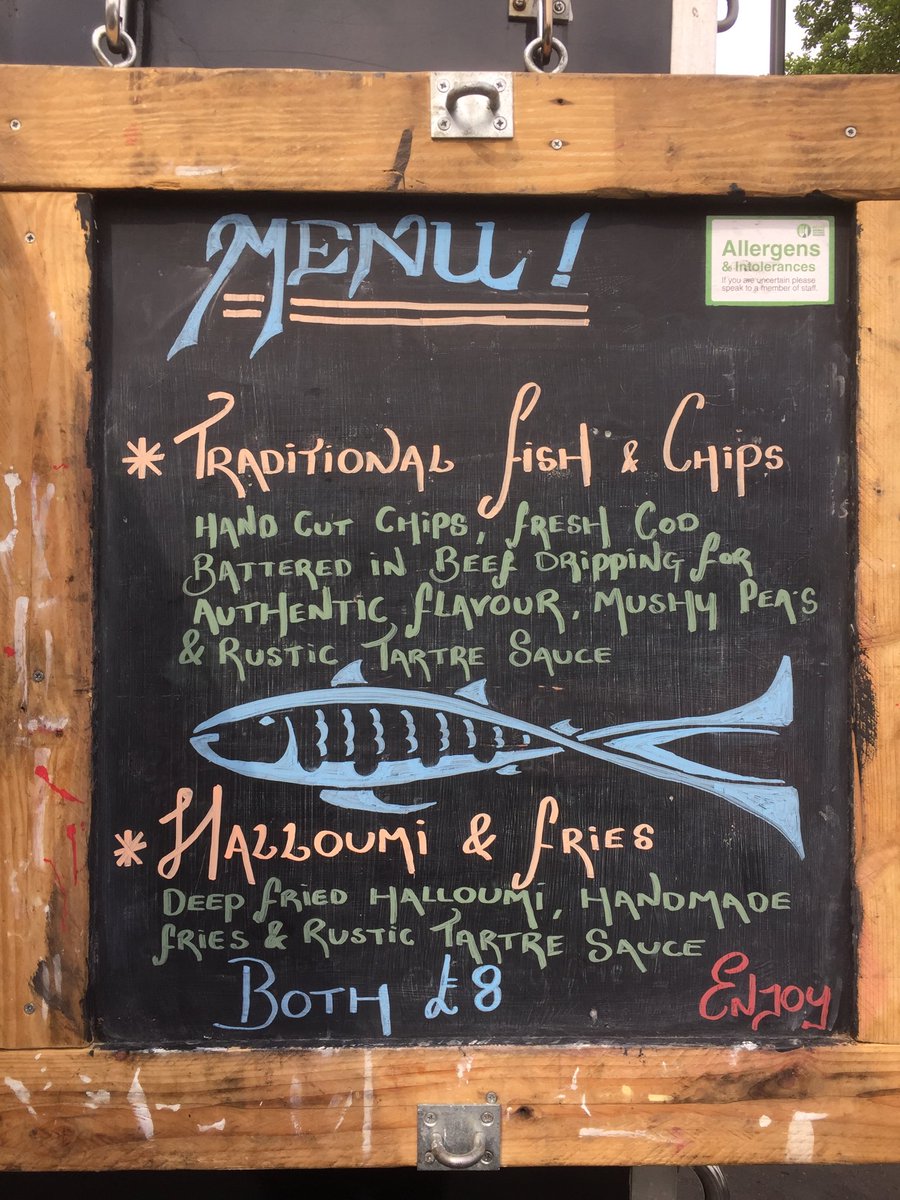 MENU!
Allergens
& Intolerances
If you are uncertain please
speak to a member of staff.
* TRADITIONAL FISH & CHIPS
HAND CUT CHIPS, FRESH COD
BATTERED IN BEEF DRIPPING FOR
AUTHENTIC FLAVOUR, MUSHY PEA'S
& RUSTIC TARTRE SAUCE
* HALLOUMI & FRIES
DEEP FRIED HALLOUMI, HANDMADE
FRIES & RUSTIC TARTRE SAUCE
BOTH £8
ENJOY